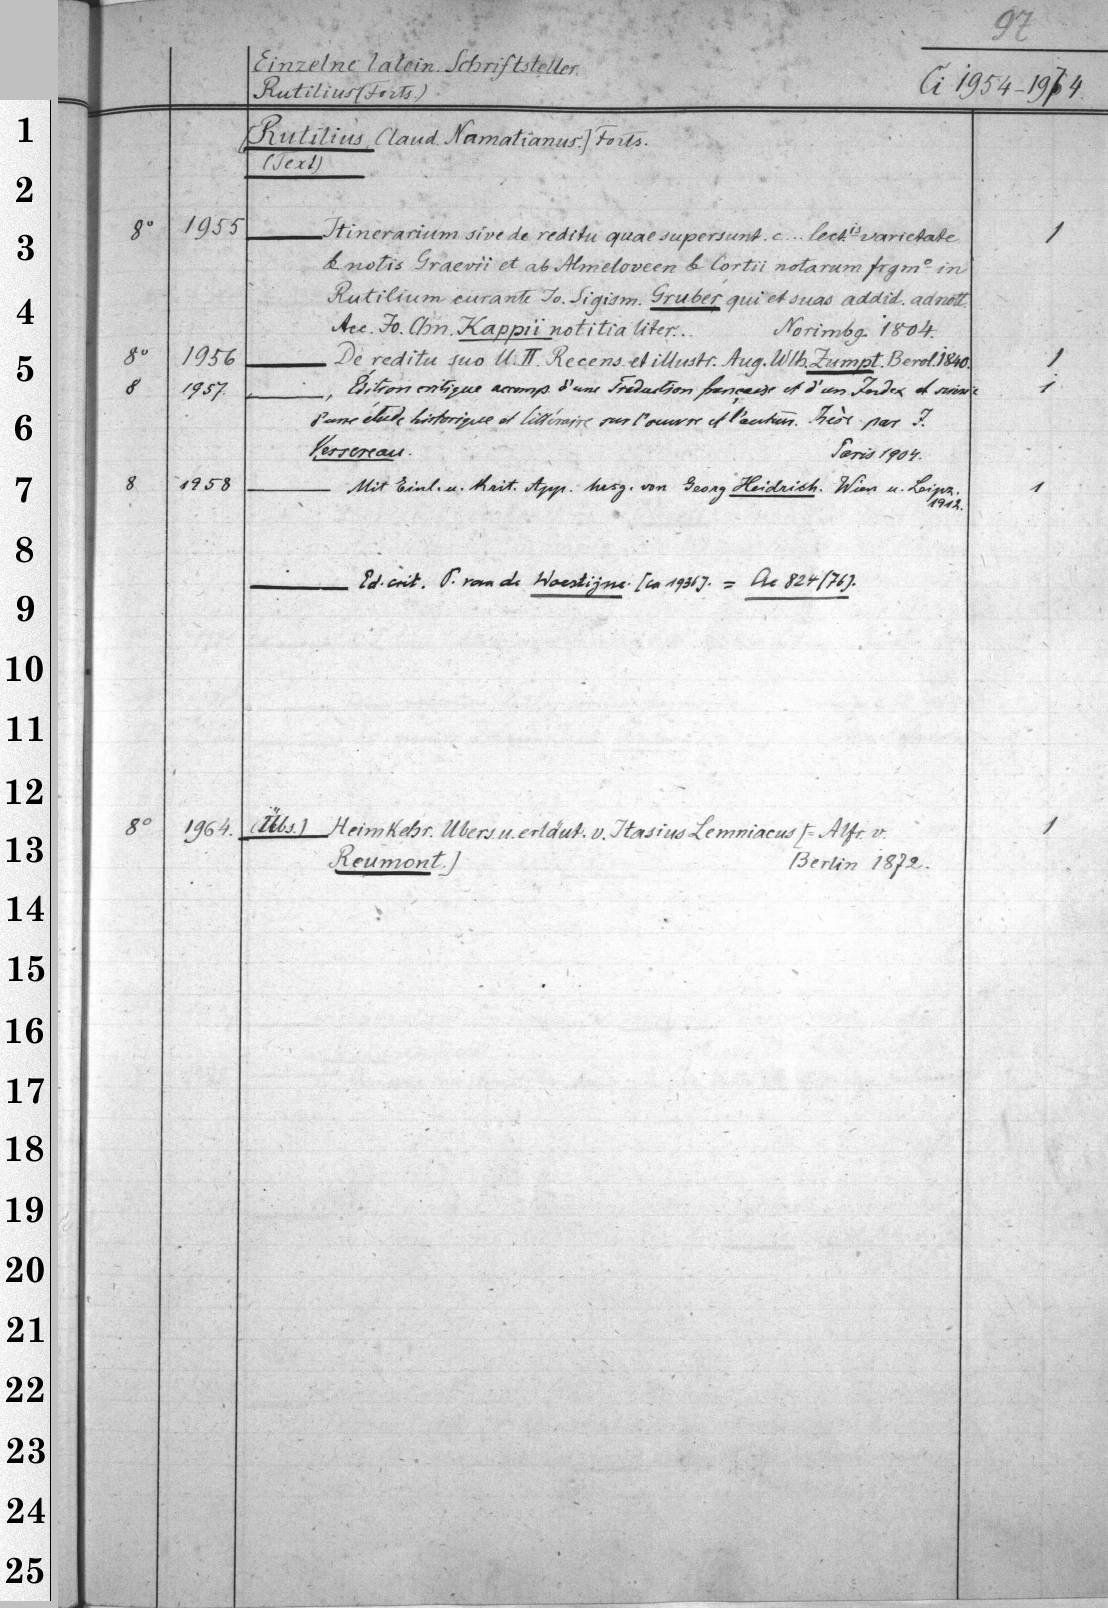 97
Einzelne latein. Schriftsteller.
Rutilius (Forts.)
Ci 1954-1964.
1
[Rutilius, Claud. Namatianus.] Forts.
(Text)
2
8° 1955 Itinerarium sive de reditu quae supersunt. c... lect.is varietate 1
3
& notis Graevii et ab Almeloveen & Cortii notarum frgm° in
Rutilium curante Jo. Sigism. Gruber, qui et suas addid. adnott.
4
Acc. Jo. Chn. Kappii notitia liter... Norimbg. 1804.
8° 1956 De reditu suo ll. II. Recens. et illustr. Aug. Wlh. Zumpt. Berol. 1840. 1
5
8 1957. , Édition critique accomp. d'une Traduction française et d'un Index et suivie 1
d'une étude historique et littéraire sur l'œuvre et l'auteur. Thèse par J.
6
Vessereau. Paris 1904.
7
8 1958 Mit Einl. u. krit. App. hrsg. von Georg Heidrich. Wien u. Leipz. 1
1912.
8
Ed. crit. P. van de Woestijne. [ca 1936]. = Ae 824/76).
9
10
11
12
8° 1964. (Übs.) Heimkehr. Übers. u. erläut. v. Itasius Lemniacus [= Alfr. v. 1
13
Reumont.] Berlin 1872.
14
15
16
17
18
19
20
21
22
23
24
25